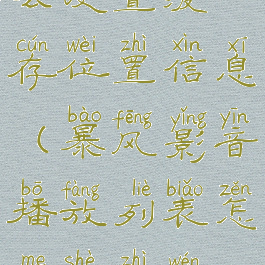 cún wèi zhì xìn xī
存位置信息
bào fēng yǐng yīn
(暴风影音
bō fàng liè biǎo zěn
播放列表怎
me shè zhì wén